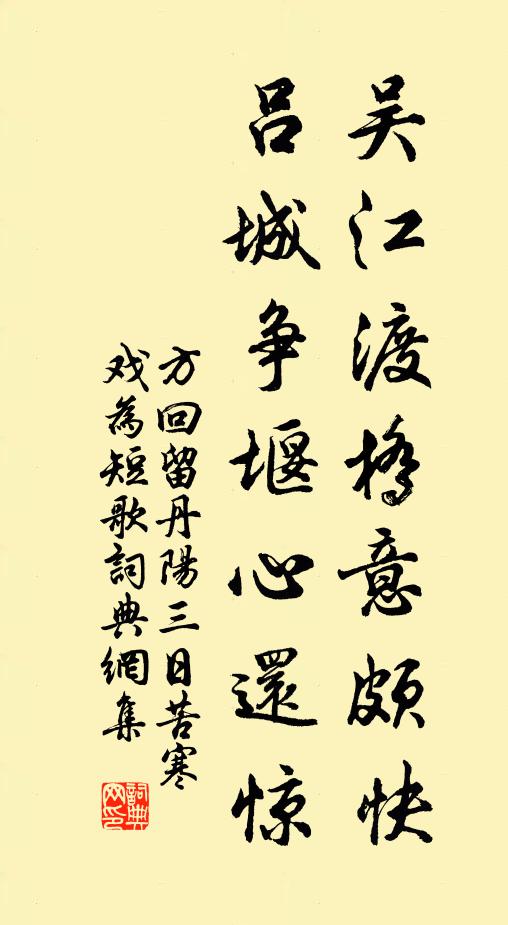 吴江渡橋意頗快
吕城争堰心還惊
方回留丹陽三日苦寒
戏為短歌詞典網集
詞典
网印